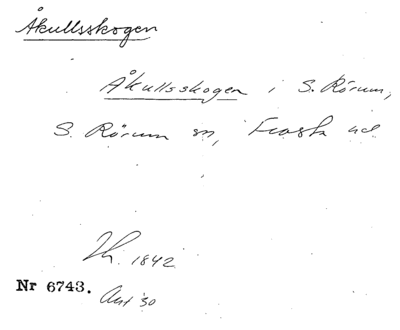 Åkullsskogen
Åkullsskogen i S. Rörum,
S. Rörum sn, Frosta hd
Th. 1842
Nr 6743. Avs '30